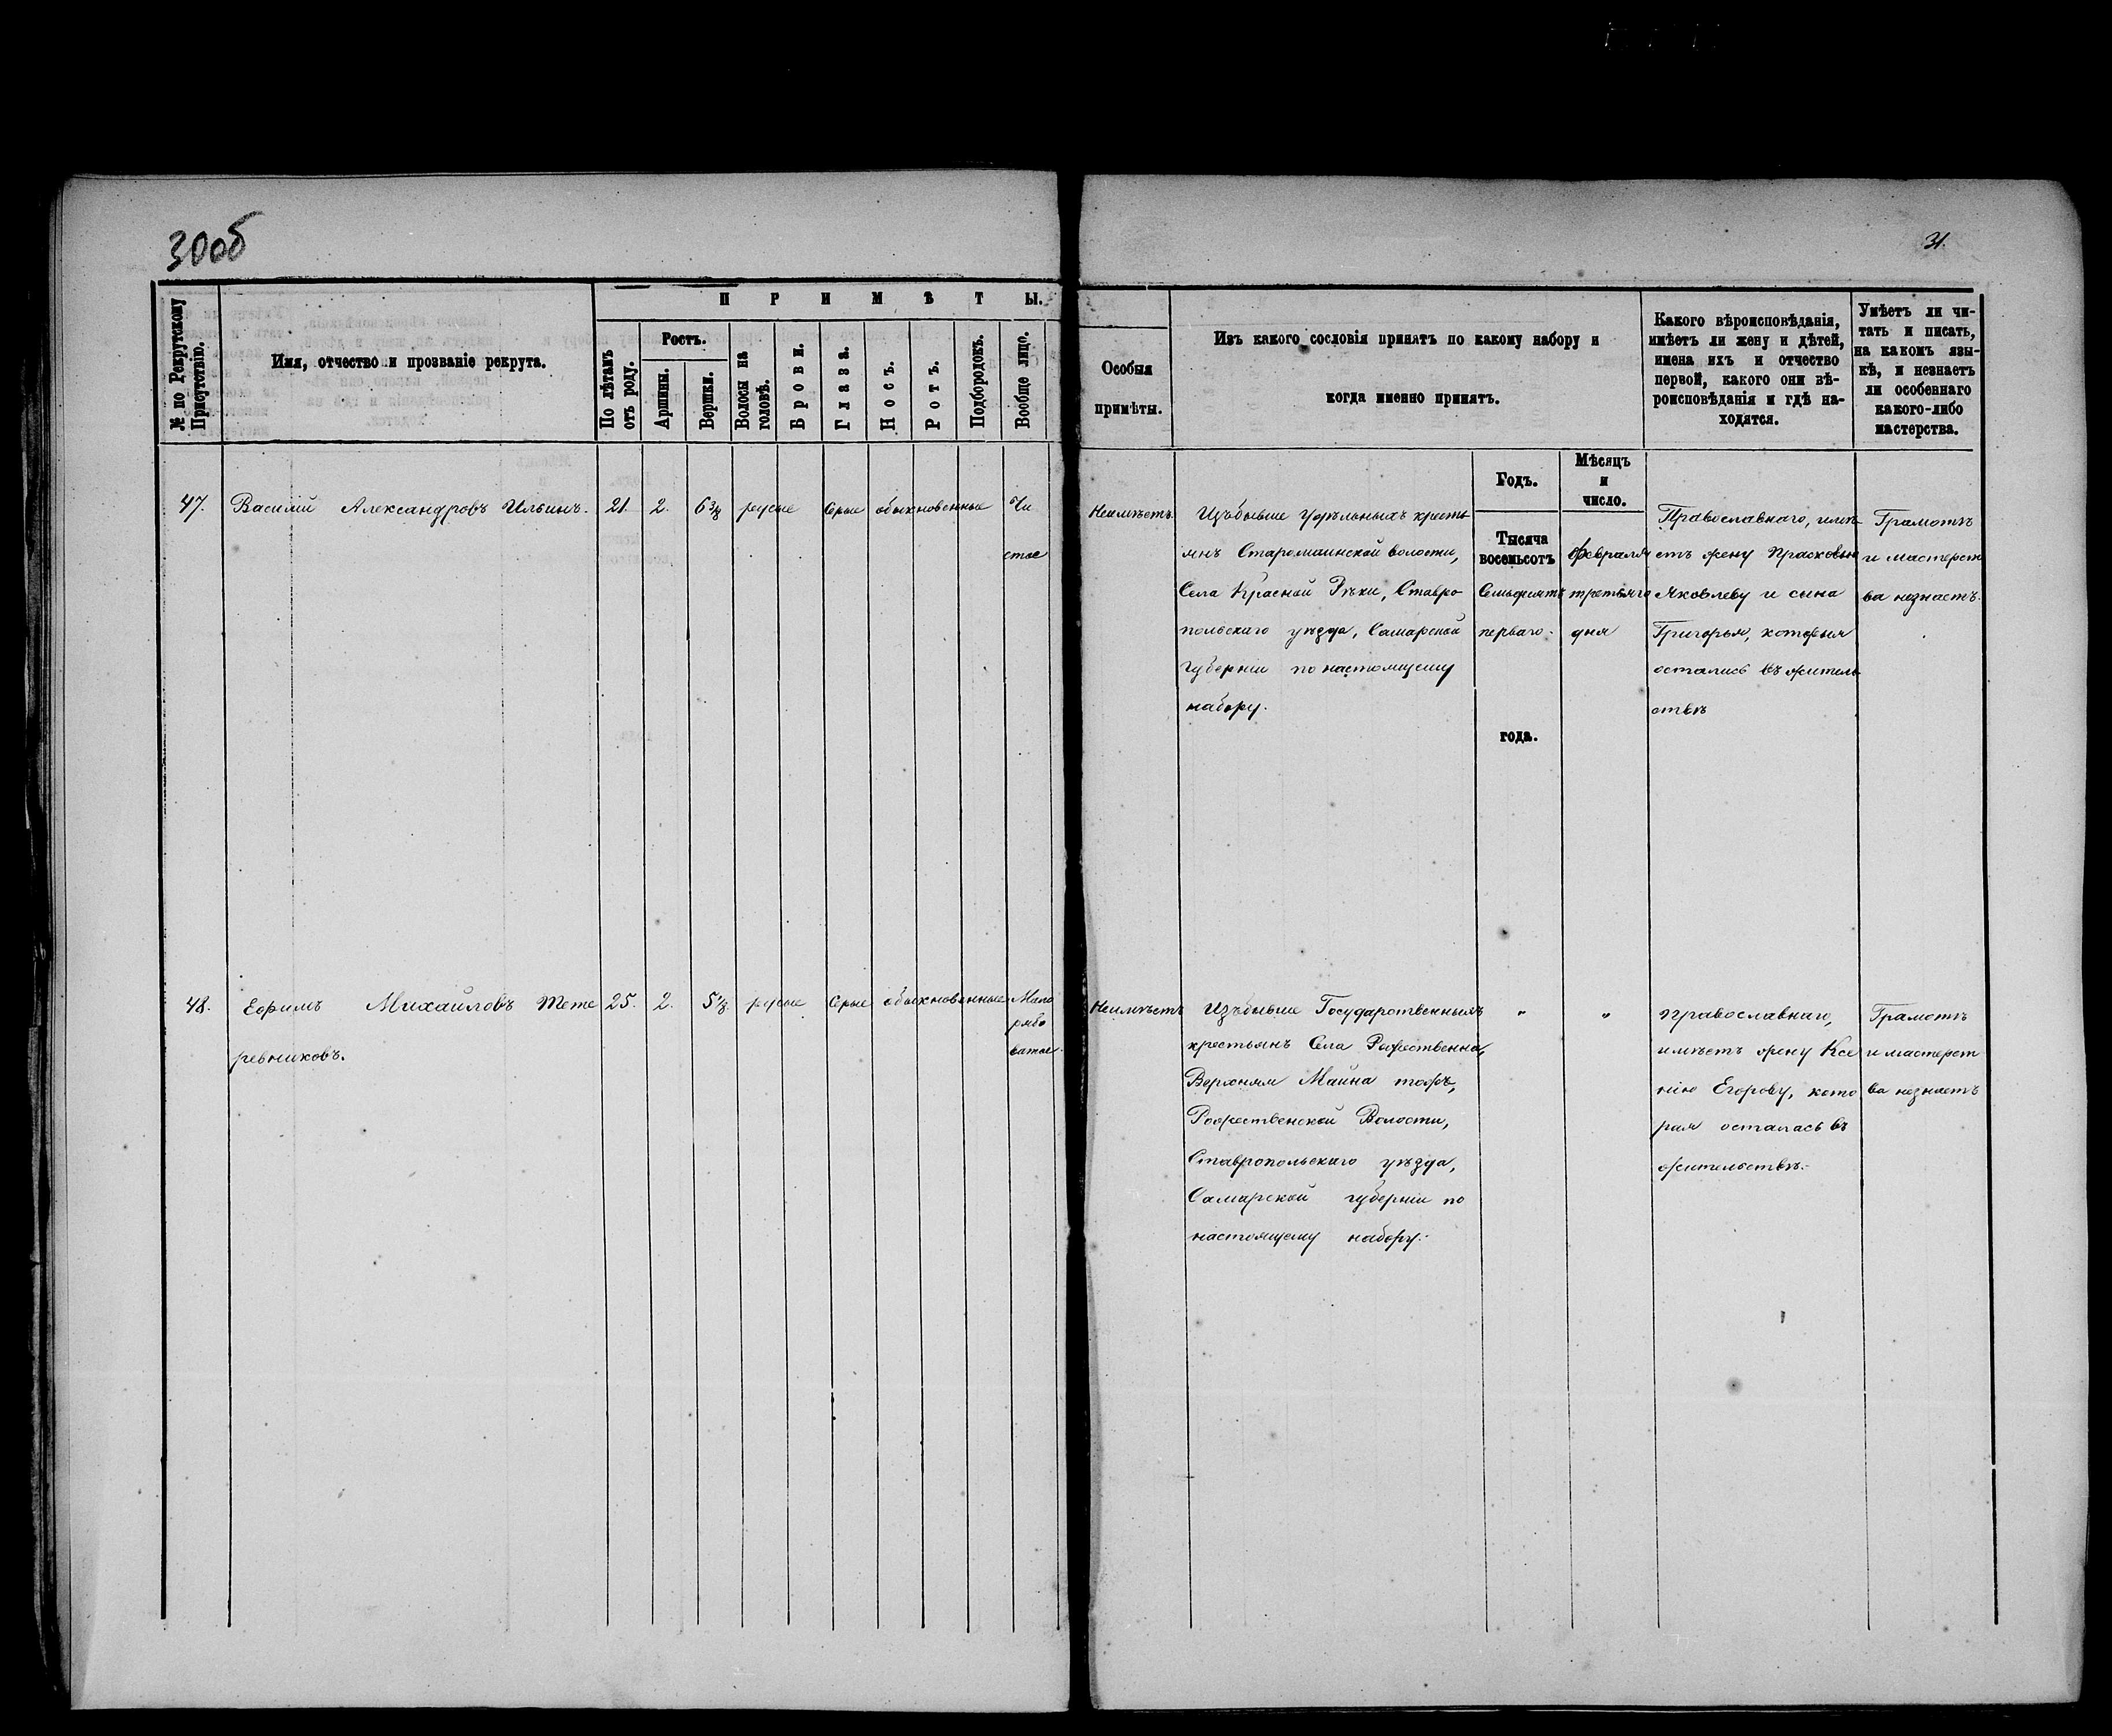 30об
31.
№ по Рекрутскому Присутствію.
Имя, отчество и прозваніе рекрута.
ПРИМѢТЫ.
По лѣтамъ отъ роду.
Ростъ.
Аршины.
Вершки.
Волосы на головѣ.
Брови.
Глаза.
Носъ.
Ротъ.
Подбородокъ.
Вообще лицо.
Особыя
примѣты.
Изъ какого сословія принятъ по какому набору и
когда именно принятъ.
Какого вѣроисповѣданія,
имѣетъ ли жену и дѣтей,
имена ихъ и отчество
первой, какого они вѣ-
роисповѣданія и гдѣ на-
ходятся.
Умѣетъ ли чи-
тать и писать,
на какомъ язы-
кѣ, и незнаетъ
ли особеннаго
какого-либо
мастерства.
Годъ.
Мѣсяцъ
и
число.
47. Василій Александровъ Ильинъ. 21. 2. 6 3/8 русые Серые обыкновенные Чи
стое
Неимѣетъ.
Изъ бывше Удѣльныхъ кресть
янъ Старомаинской волости,
Села Красной Рѣки, Ставро
польскаго уѣзда, Самарской
Губерніи по настоящему
набору.
Тысяча
восемьсотъ
Семьдесятъ
перваго.
года.
февраля
третьяго
дня
Православнаго, имѣ
етъ жену Прасковью
Яковлеву и сына
Григорья, которыя
остались въ житель
ствѣ
Грамотѣ
и мастерст
ва незнаетъ.
48. Ефимъ Михайловъ Тете 25. 2. 5 1/8. русые Серые обыкновенные Мало
ревниковъ.
рябо
ватое.
Неимѣетъ
Изъ бывше Государственныхъ
крестьянъ Села Рождественна,
Верхняя Маина тожъ,
Рождественской Волости,
Ставропольскаго уѣзда,
Самарской губерніи по
настоящему набору.
"
"
Православнаго,
имѣетъ жену Ксе
нію Егорову, кото
рая осталась въ
жительствѣ.
Грамотѣ
и мастерст
ва незнаетъ